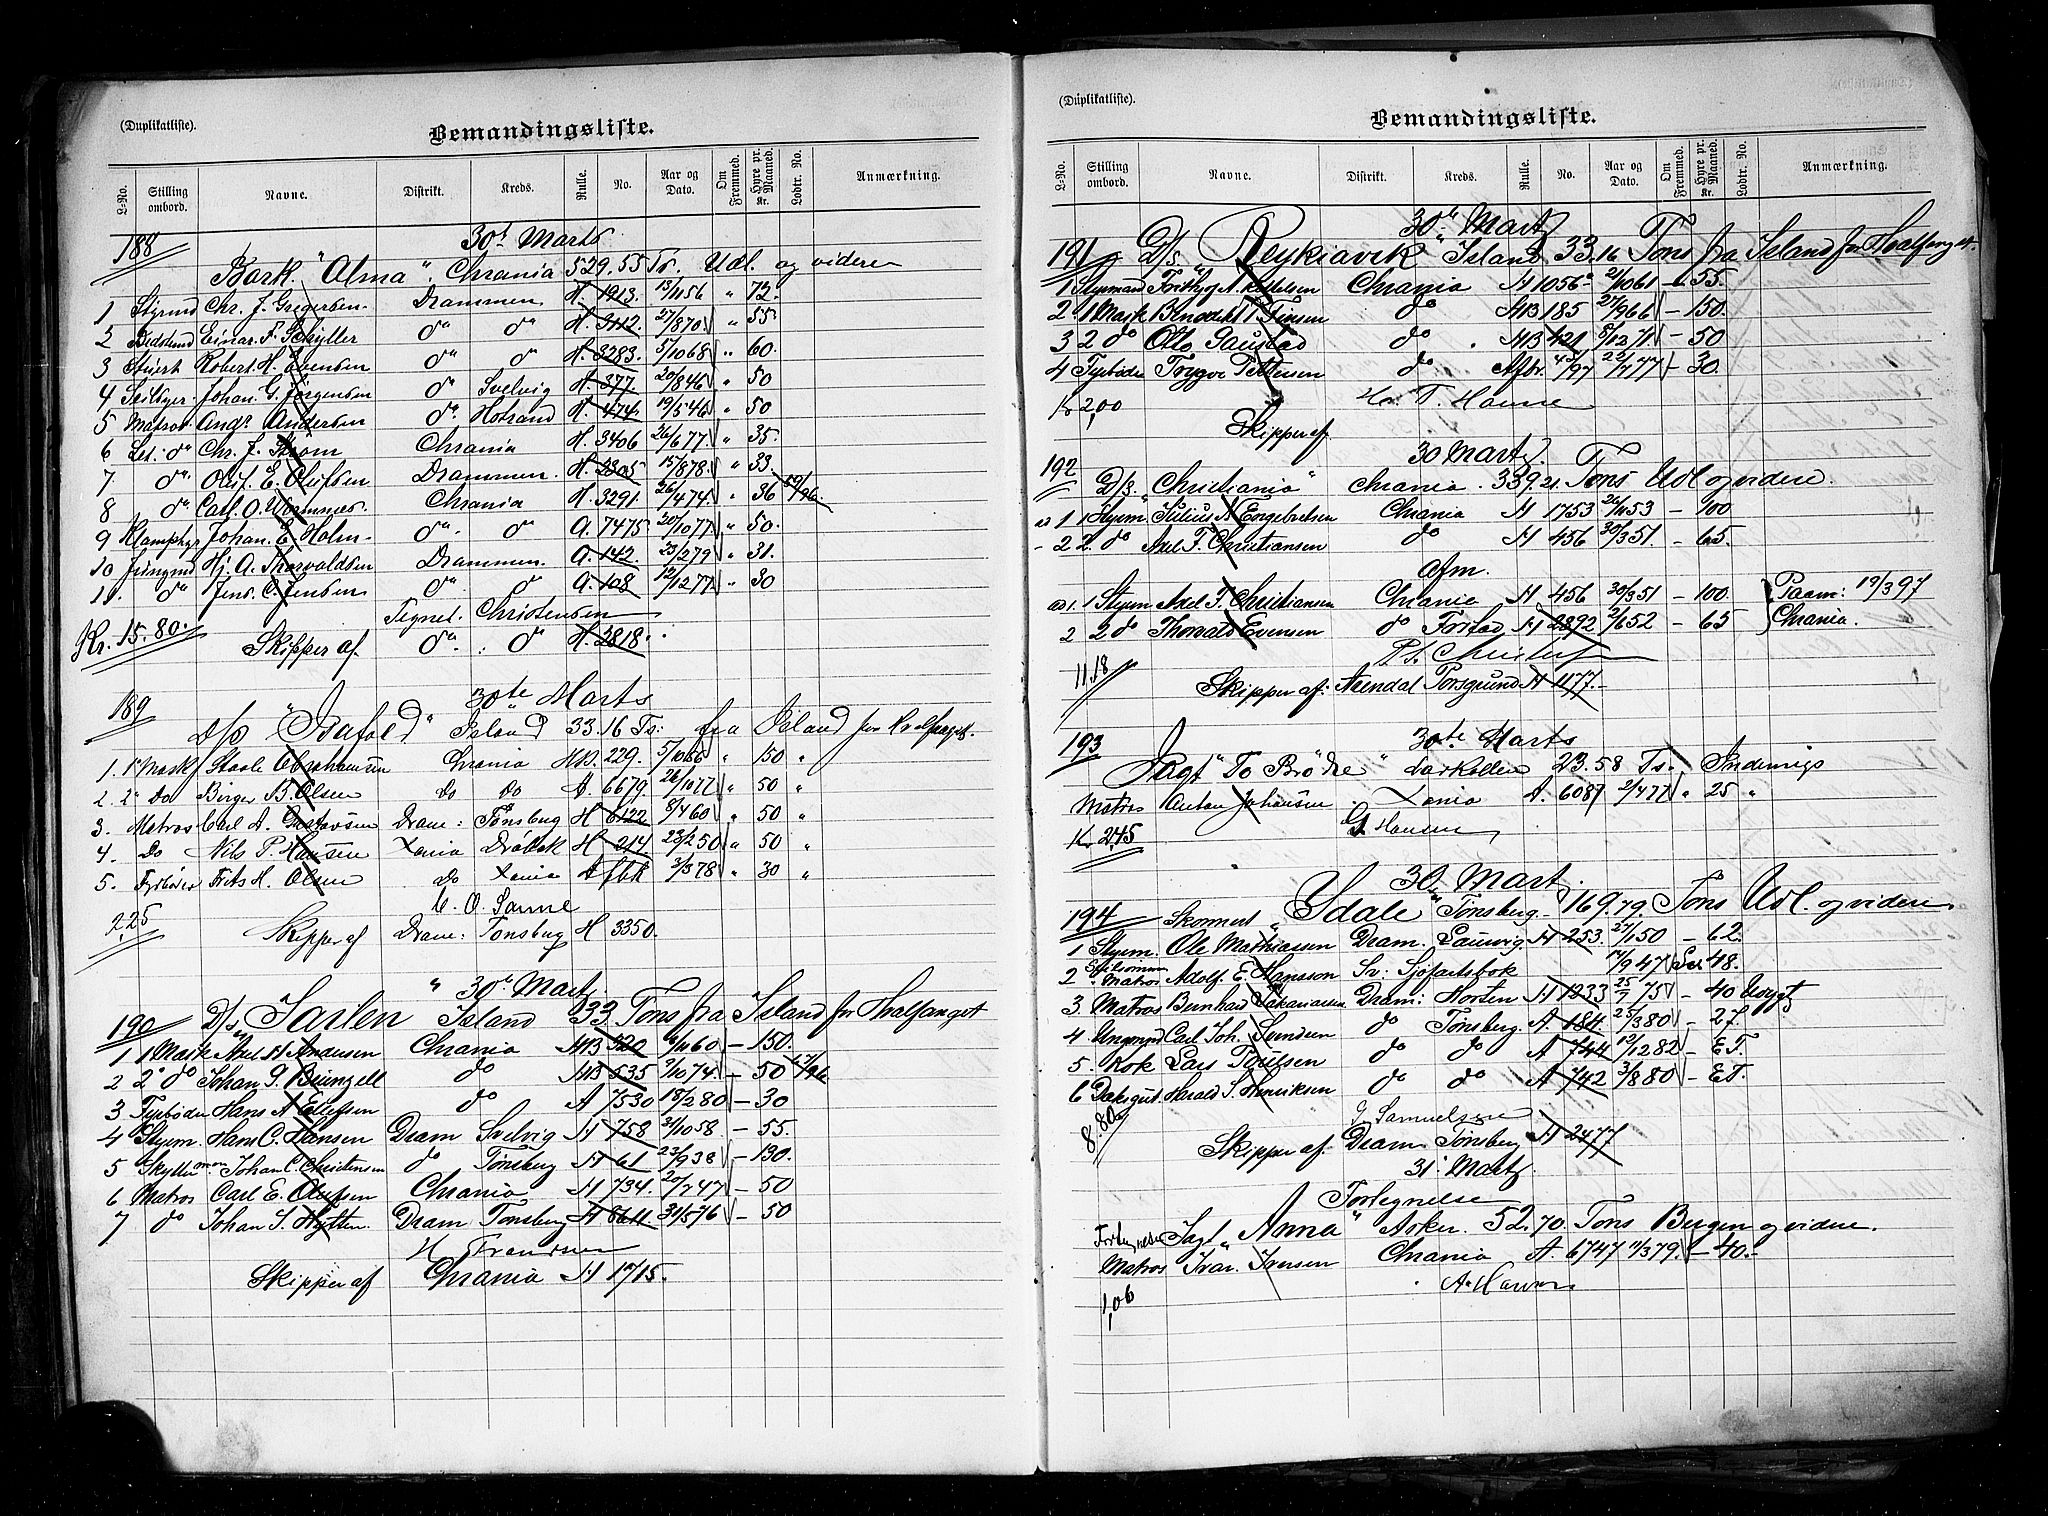 (Duplikatliste).
Bemandingsliste.
L-No. Stilling ombord. Navne. Distrikt. Kreds. Rulle. No. Aar og Dato. Om Fremmed. Hyre pr. Maaned. Kr. Lodtr. No. Anmærkning.
188 30t Marts
Bark "Alma". Chrania 529.55 Ts. Udl. og videre
1 Styrmd Chr. J. Gregersen Drammen H. 1913. 13/1156 " 72.
2 Bedstmd Einar F. Schyller do do H. 3112. 27/870 " 55
3 Stuert Robert H. Evensen do do H. 3283. 5/1068 " 60.
4 Seilsyer Johan G. Jørgensen do Svelvig H. 377. 20/846 " 50
5 Matros Andrs Andersen do Holsand H. 474. 19/546 " 50
6 Let. do Chr. J. Strøm Chrania H. 3406 26/677 " 35.
7 do Oluf E. Olufsen Drammen H. 2305 15/878. " 33.
8 do Carl O. Wormnæs. Chrania H. 3291. 26/474. " 36 19/96
9 Klamphgr Johan E. Holm do do A. 7475. 20/1077 " 50.
10 Jungmd Hj. A. Thorvaldsen Drammen A. 142. 23/279 " 31.
11. do Jens C. Jensen do do A. 108 12/1277 " 30
Tegnet Christensen
Kr. 15.80. Skipper af. do do H. 2818.
189 30te Marts
D/s "Isafold" Island 33.16 Ts. fra Island for Hvalfanget.
1. 1 Mask Staale Abrahamsen Chrania MB. 229. 5/1066 " 150 "
2. 2 Do Birger B. Olsen Do Do A. 6679 26/1077 " 50 "
3. Matros Carl A. Gustavsen Dram: Tønsbug H 6122 8/460 " 50 "
4. Do Nils P. Hansen Xania Drøbak H 214. 23/250 " 50 "
5. Fyrbøder Frits H. Olsen Do Xania Afbk 3/378 " 30 "
C. O. Sanne
2,25 Skipper af Dram: Tonsbug H 3350.
30t Marts
190 D/s "Jarlen Island 33 Tons fra Island for Hvalfanget
1 1 Mask Axel H Andersen Chrania MB 320 6/1160 – 150.
2 2 do Johan G. do MB 535 2/1074. – 50 17/96
3 Fyrbøder Hans A Ellefsen do A 7530 18/280 – 30
4 Styrm. Hans C. Hansen Dram Svelvig H 758 2/1058. – 55.
5 Skytterman Johan C. Christensen do Tønsberg H 61 23/938 – 130.
6 Matros Carl E. Olufsen Chrania H 734. 20/247 – 50
7 do Johan S. Hytten Dram Tonsberg H 6611 31/576 – 50
H Frantzen
Skipper af Chrania H 1715.
(Duplikatliste).
Bemandingsliste.
L-No. Stilling ombord. Navne. Distrikt. Kreds. Rulle. No. Aar og Dato. Om Fremmed. Hyre pr. Maaned. Kr. Lodtr. No. Anmærkning.
30t Marts
191 D/s "Reykiavik" Island 33.16 Tons fra Island for Hvalfanget.
1 Styrmand Frithjof A. Chrania H 1056 21/1061 – 55.
2 1 Mask Benedikt T. Finsen do MB 185 27/966 – 150.
3 2 do Otto Gaustad do MB 421 8/1271 – 50
4 Fyrbøder Trygve Pettersen do Afbr. 45/97 22/777 – 30.
Kr 2,00 Hr. T. Hanne
Skipper af
30 Marts.
192 D/s "Christiania" Chrania. 339.21 Tons Udl og videre.
1 1 Styrm Julius N Engebretsen Chrania H 1753 26/1153 – 100
2 2. do Axel F. Christiansen do H 456 30/351. – 65.
afm.
1. 1 Styrm Axel F. Christiansen Chrania H 456 30/351 – 100. Paam: 19/397
2 2 do Thorvald Evensen do Frstad H 2892 2/652 – 65 Chrania.
11.18 Skipper af: Arendal Porsgrund H 1177.
193 30te Marts
Jagt "To Brødre" Larkollen 23.58 Ts. Indenrigs
Matros Anton Johansen. Xania A. 6087 2/477 " 25 "
K. 2,45 G Hansen
30 Marts.
194 Skonnert "Ydale" Tønsberg 169.79. Tons Udl. og videre
1 Styrm. Ole Mathiassen Dram. Laurvig H 253. 27/150 – 62.
2 Matros Adolf E. Hansson Sv: Sjöfartsbok 14/947 48.
3 Matros Bernhard Zakariassen Dram: Horten H 1233 25/7 75 – 40
4 Ungmd Carl Joh. Svendsen do Tønsberg. A 184. 25/380 – 27.
5. Kok Lars Poulsen do do A 744 12/1282 – E.T.
6 Dæksgut Harald S. Henriksen do do A 742 3/880 – E.T.
J Samuelsen
8.80 Skipper af: Dram Tønsberg H 2477
31 Marts
Fortegnelse
Fortegnelse Jagt "Anna" Asker. 52.70. Tons Bergen og videre.
Matros Ivar Iversen Chrania A. 6747 11/379. – 40.–
1,06 A. Hansen